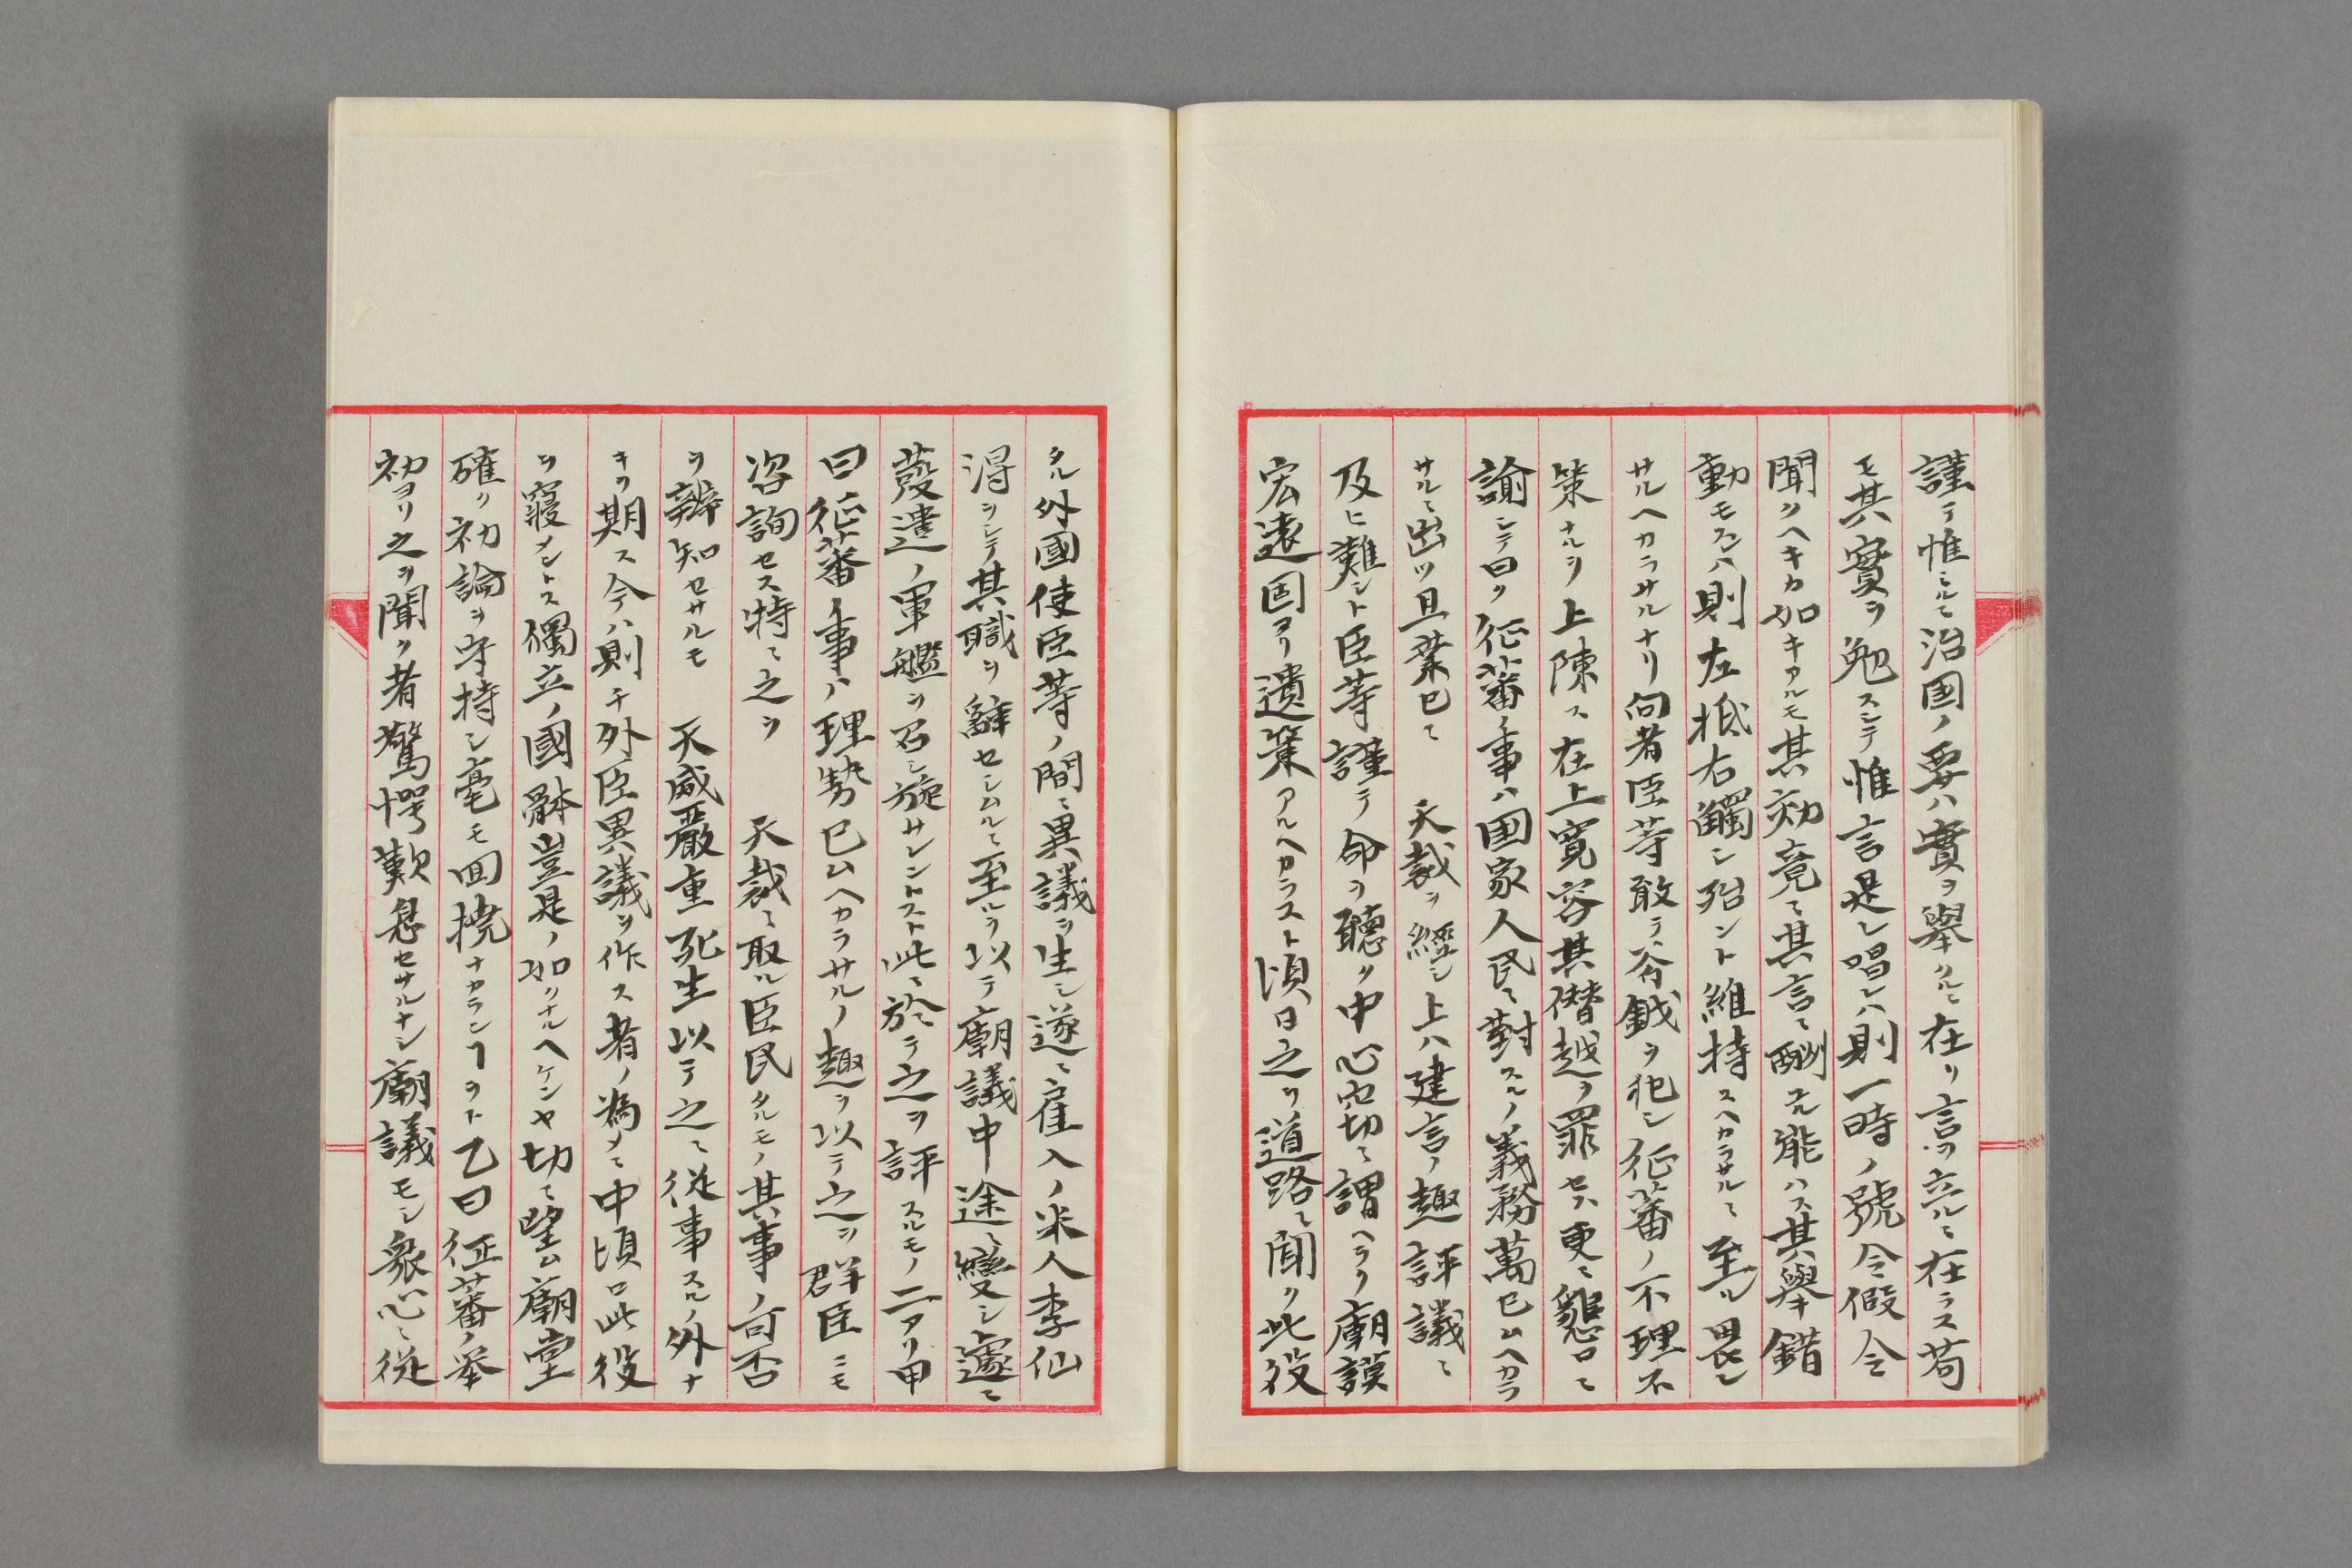 謹テ惟ミルニ治国ノ要ハ實ヲ舉クルニ在リ言ヲ立ルニ在ラス苟
モ其實ヲ勉スシテ惟言是レ唱レハ則一時ノ號令假令
聞クヘキカ如キアルモ其効竟ニ其言ニ酬ユル能ハス其舉錯
動モスレハ則左抵右觸シ殆ント維持スヘカラサルニ至ル畏レ
サルヘカラサルナリ向者臣等敢テ斧鉞ヲ犯シ征蕃ノ不理不
策ナルヲ上陳ス在上寛容其僭越ヲ罪セス更ニ懇ロニ
諭シテ曰ク征蕃ノ事ハ国家人民ニ對スルノ義務萬已ムヘカラ
サルニ出ツ且業已ニ　天裁ヲ經シ上ハ建言ノ趣評議ニ
及ヒ難シト臣等謹テ命ヲ聽ク中心窃ニ謂ヘラク廟謨
宏遠固ヨリ遺策アルヘカラスト頃日之ヲ道路ニ聞ク此役
タル外國使臣等ノ間ニ異議ヲ生シ遂ニ雇入ノ米人李仙
得ヲシテ其職ヲ辭セシムルニ至ルヲ以テ廟議中途ニ變シ遽ニ
發遣ノ軍艦ヲ召シ旋サレントスト此ニ於テ之ヲ評スルモノ二アリ甲
曰征蕃ノ事ハ理勢已ムヘカラサルノ趣ヲ以テ之ヲ群臣ニモ
咨詢セス特ニ之ヲ　天裁ニ取ル臣民タルモノ其事ノ可否
ヲ辨知セサルモ　天威嚴重死生以テ之ニ従事スルノ外ナ
キヲ期ス今ハ則チ外臣異議ヲ作ス者ノ為メニ中頃ロ此役
ヲ寢メントス獨立ノ國躰豈是ノ如クナルヘケンヤ切ニ望ム廟堂
確ク初論ヲ守持シ毫モ回撓ナカランヿヲト乙曰征蕃ノ举
初ヨリ之ヲ聞ク者驚愕歎息セサルナシ廟議モシ衆心ニ従